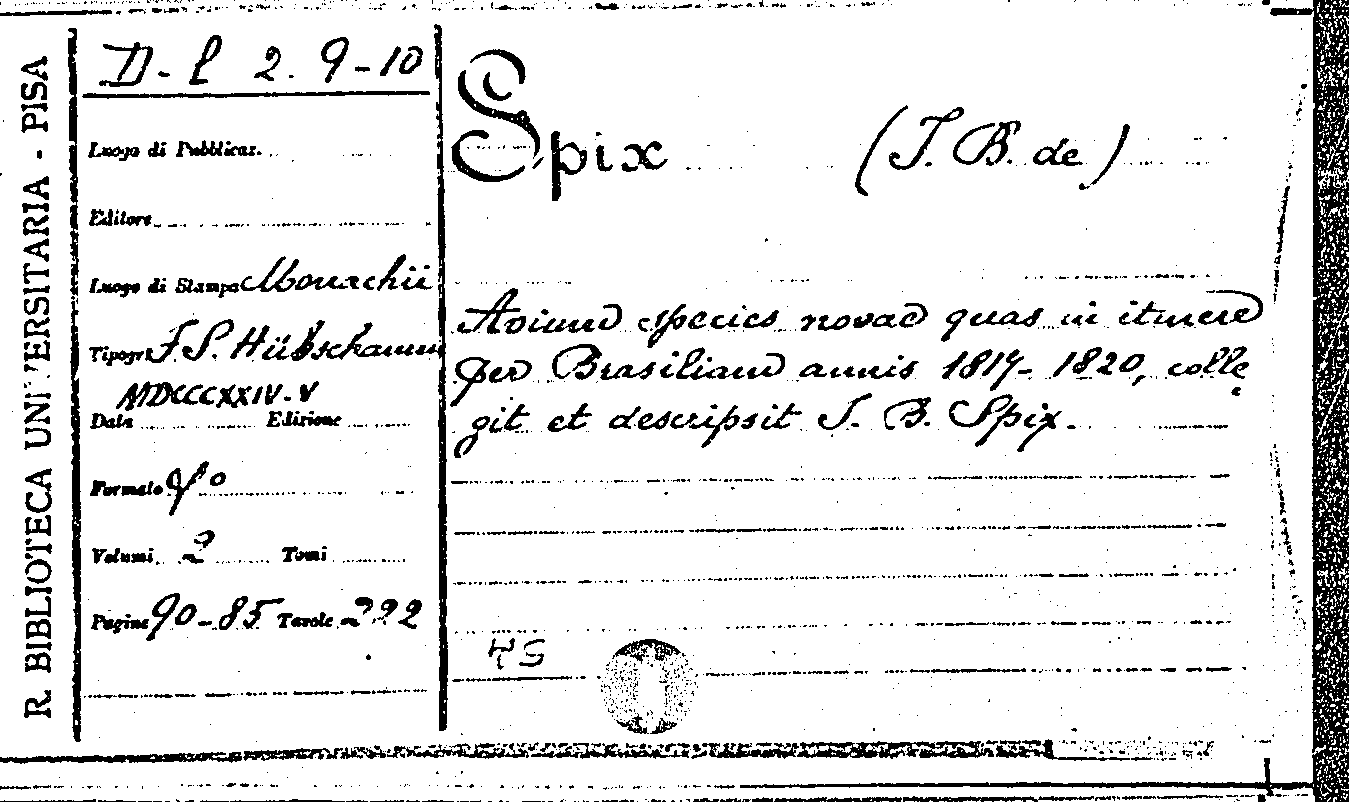 R. BIBLIOTECA UNIVERSITARIA - PISA
D. l 2. 9-10
Luogo di Pubblicaz.
Editore
Luogo di Stampa Monachii
Tipogr. F. S. Hübschmann
MDCCCXXIV-V
Data Edizione
Formato f°
Volumi 2 Tomi
Pagine 90-85 Tavole 222
Spix (J. B. de)
Avium species novae quas in itinere
per Brasiliam annis 1817-1820, colle
git et descripsit J. B. Spix.